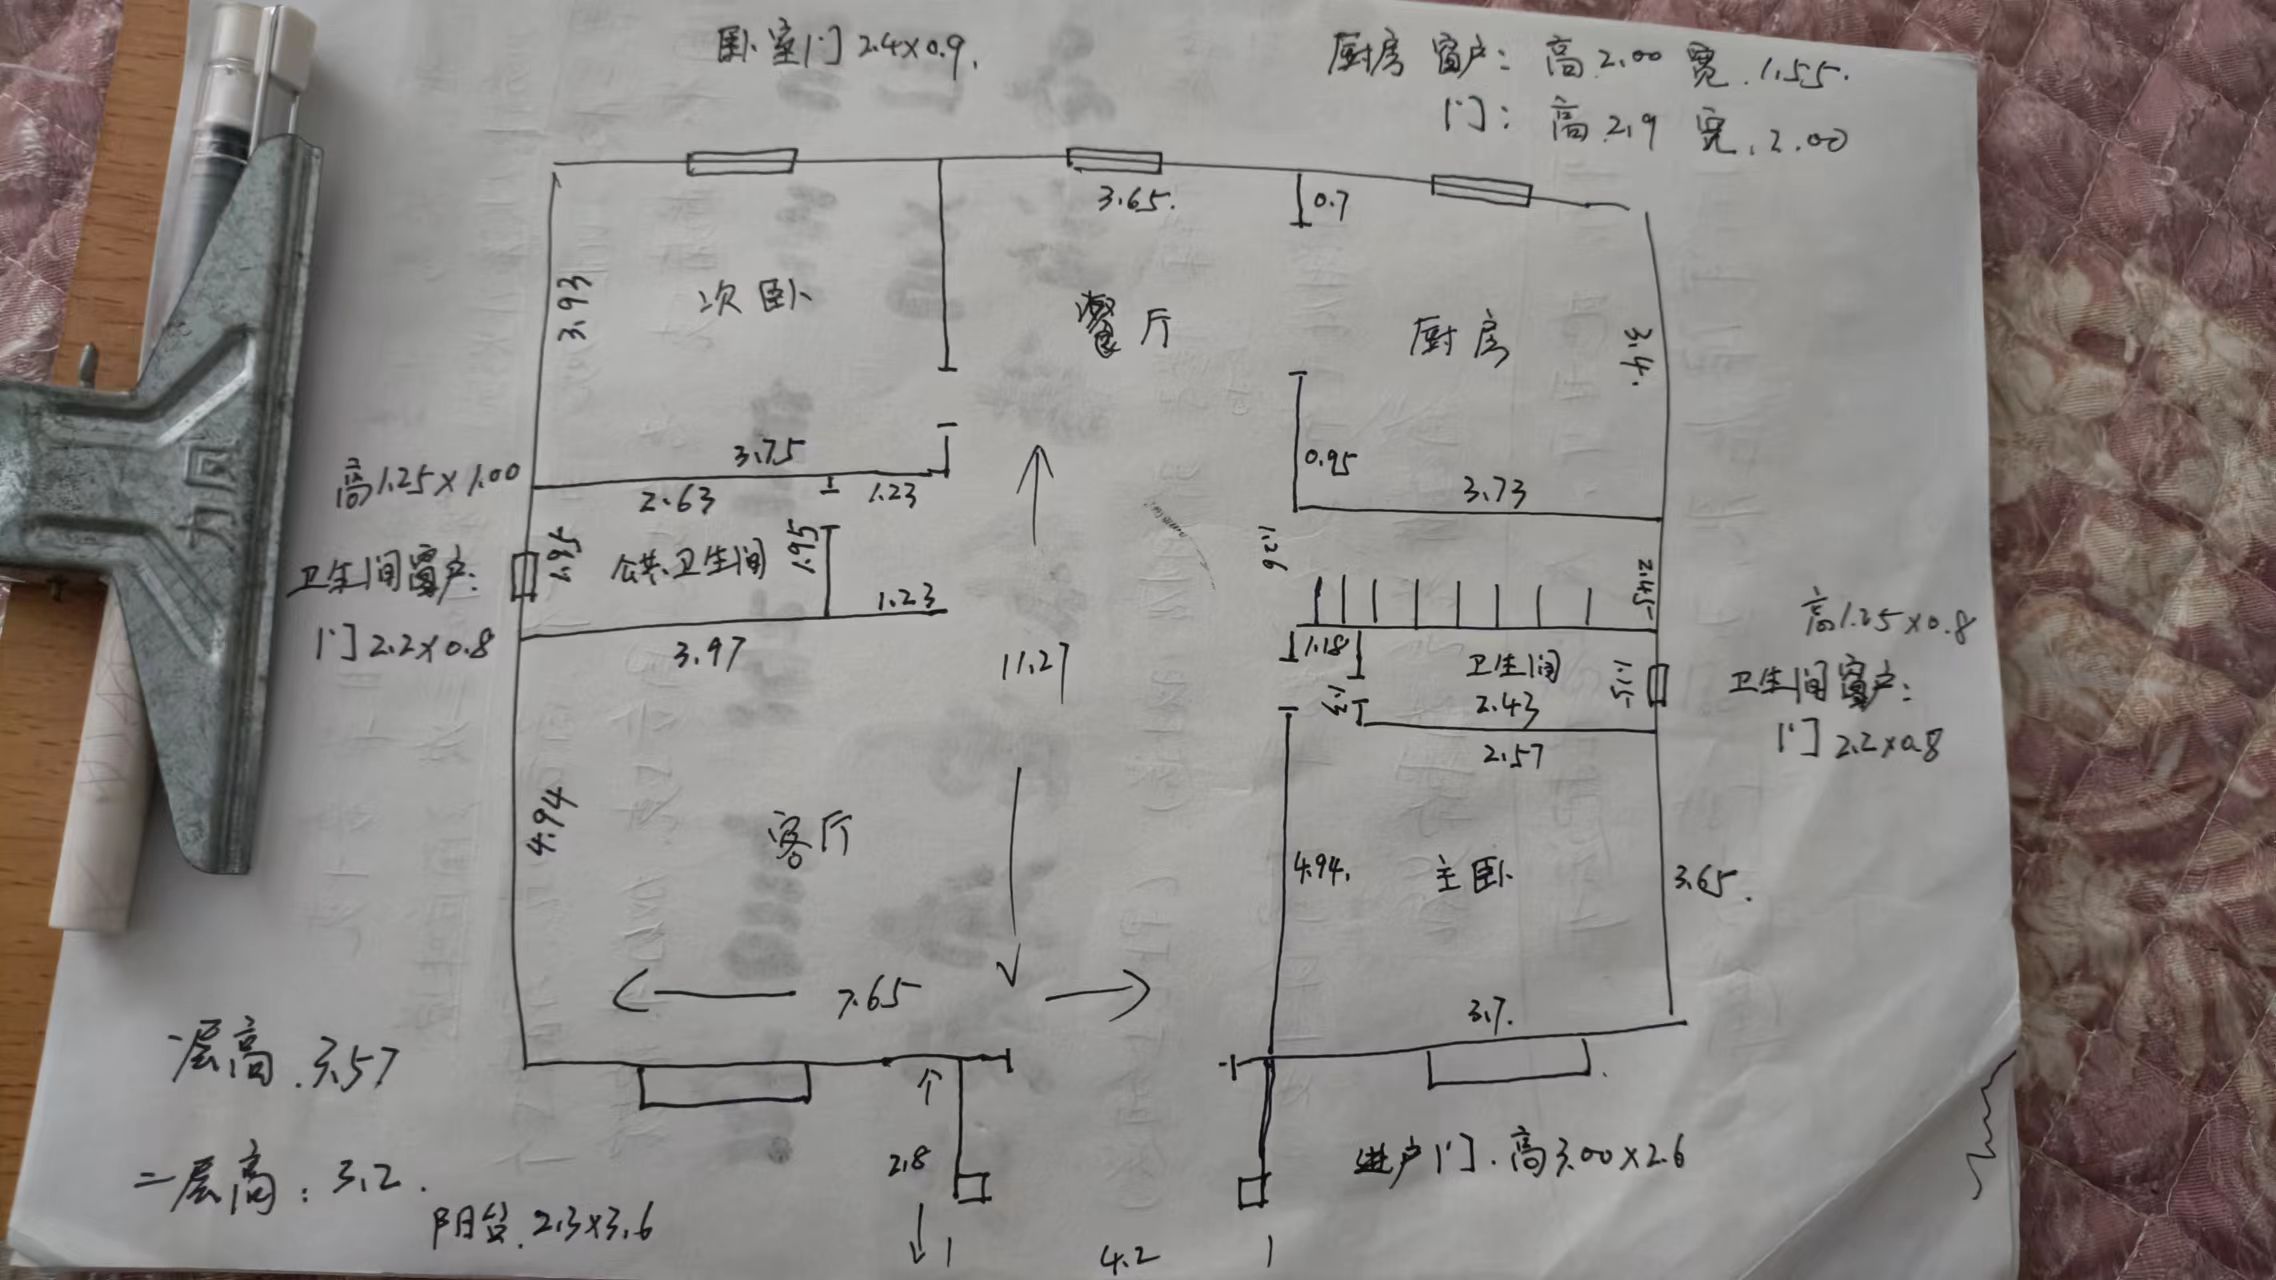 卧室门 2.4×0.9.
厨房 窗户: 高 2.00 宽.1.55.
门: 高 2.9 宽.2.00
3.65.
0.7
3.93
次卧
餐厅
厨房
3.4.
3.75
0.95
3.73
高1.25×1.00
2.63
1.23
1.26
2.45
卫生间窗户:
1.95
公共卫生间
1.95
1.23
高1.25×0.8
门2.2×0.8
3.97
11.27
1.18
卫生间
1.15
卫生间窗户:
2.43
2.57
门 2.2×0.8
4.94
客厅
4.94.
主卧
3.65.
7.65
3.7.
一层高.3.57
2.8
进户门.高3.00×2.6
二层高:3.2.
阳台.2.3×3.6
4.2
力同